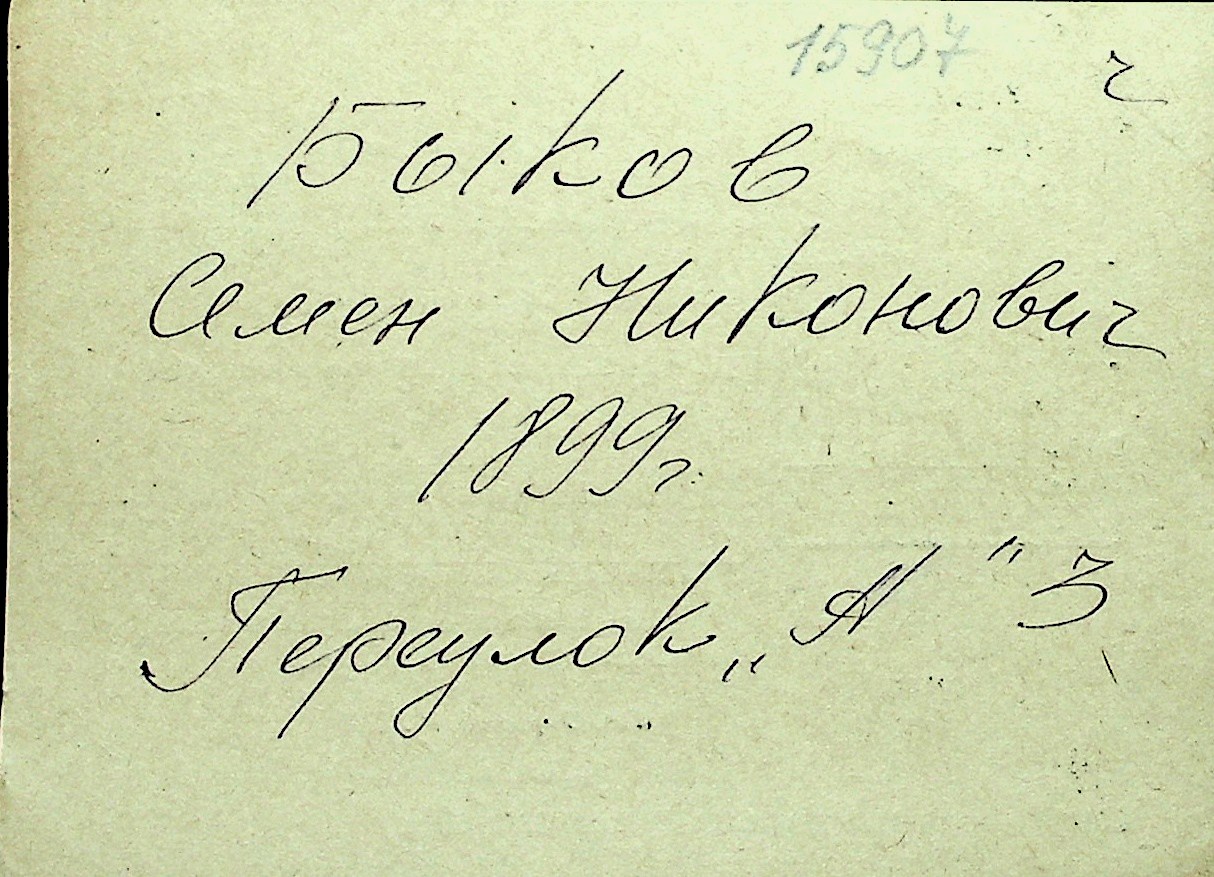 15907
ч
Быков
Семен Никонович
1899г.
Переулок „А" 3